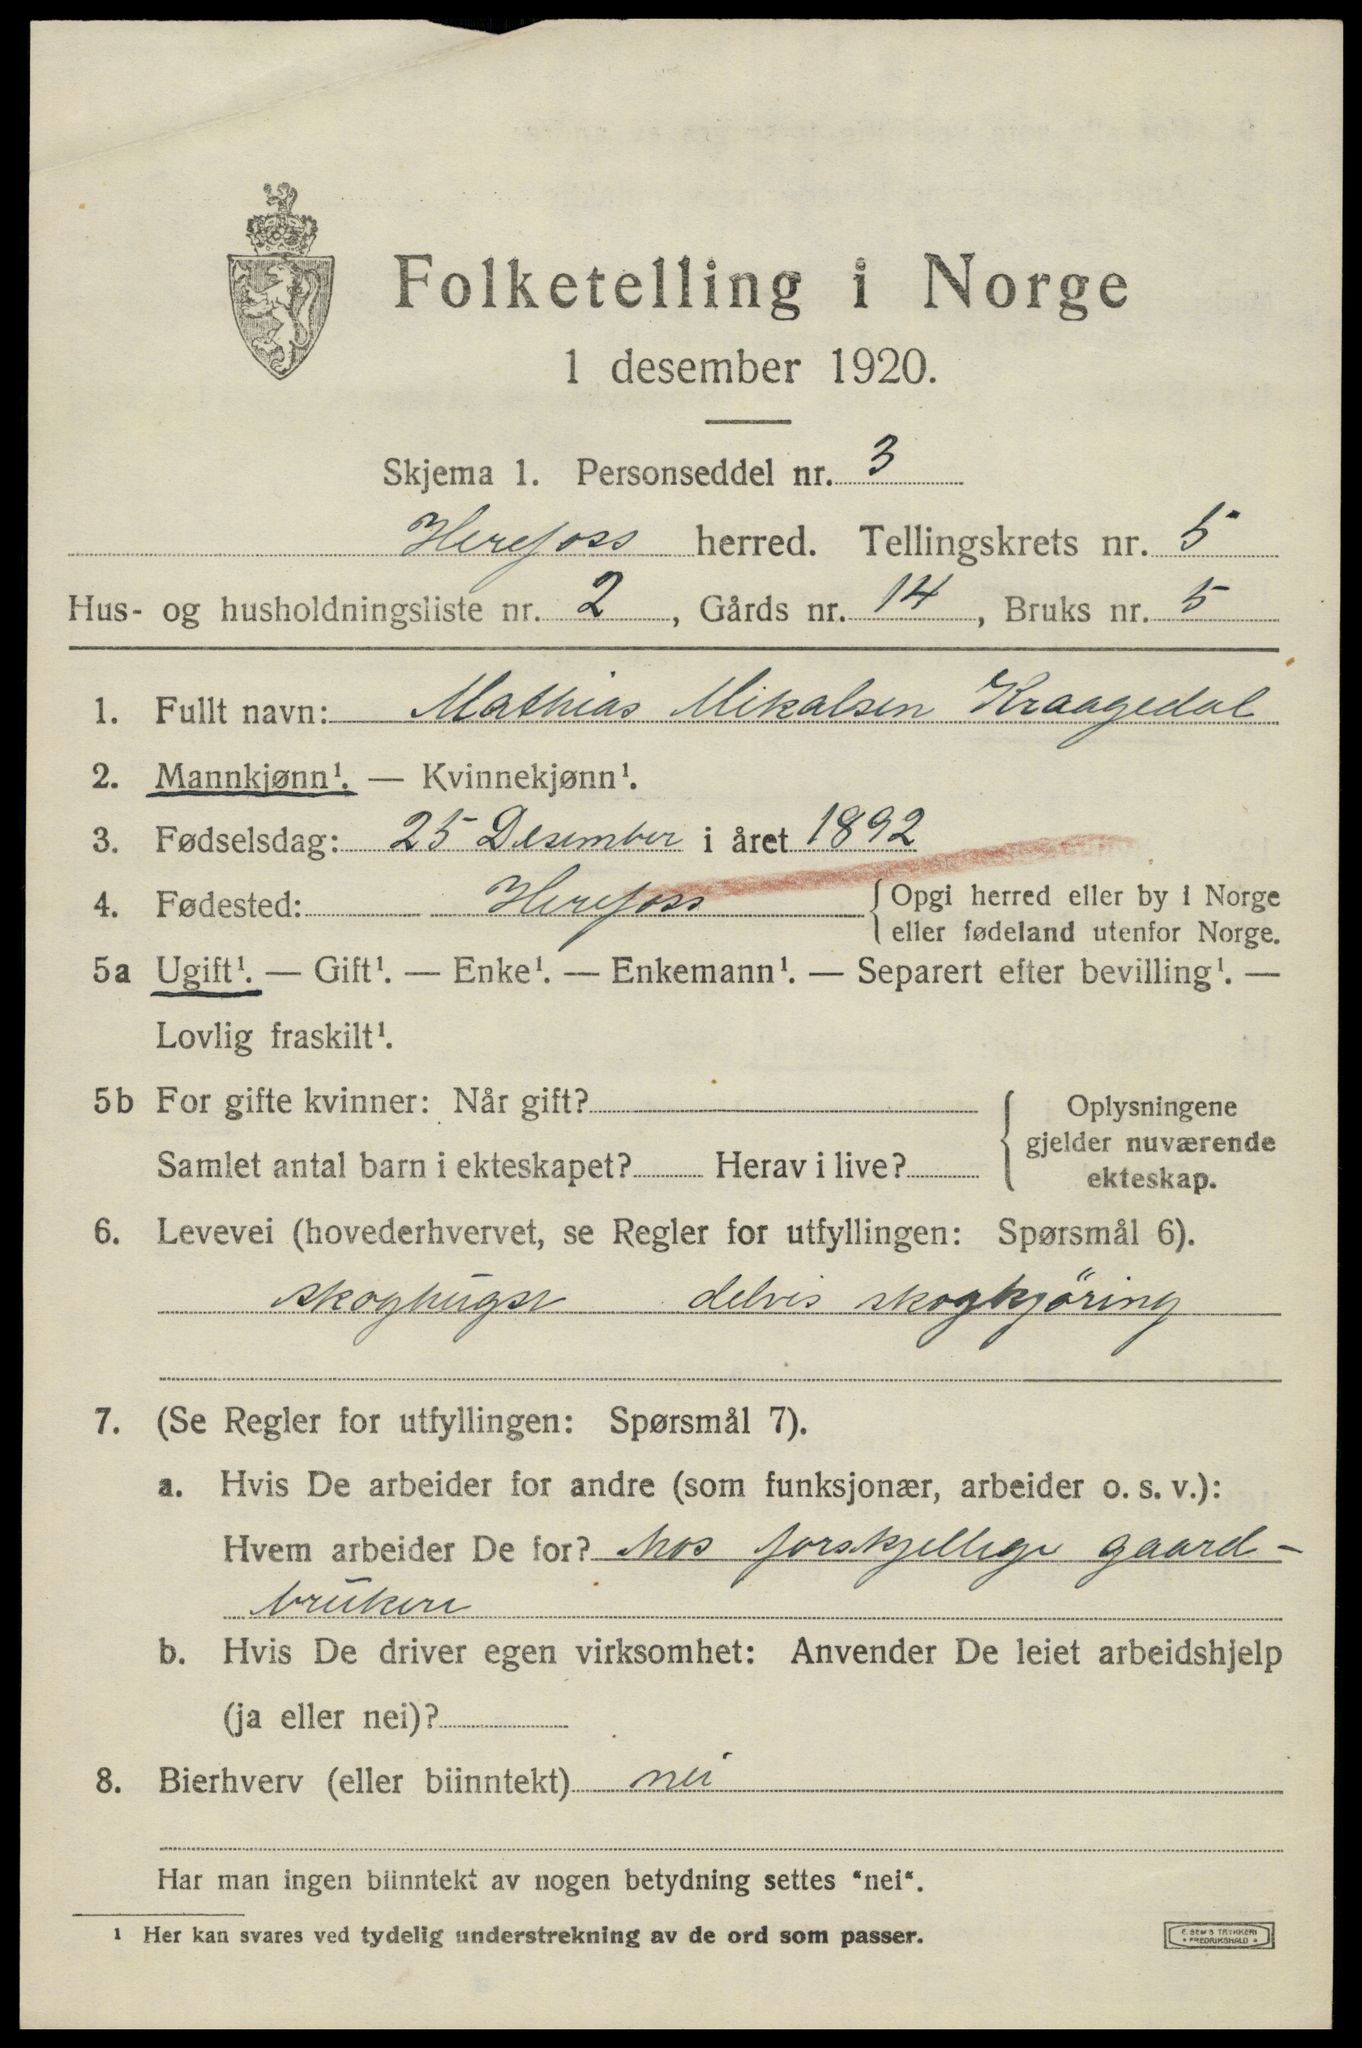 Folketelling i Norge
1 desember 1920.
Skjema 1. Personseddel nr. 3
Herefoss herred. Tellingskrets nr. 5
Hus- og husholdningsliste nr. 2, Gårds nr. 14, Bruks nr. 5
1. Fullt navn: Mathias Mikalsen Kraagedal
2. Mannkjønn¹. — Kvinnekjønn¹.
3. Fødselsdag: 25 Desember i året 1892
4. Fødested: Herefoss {Opgi herred eller by i Norge
eller fødeland utenfor Norge.
5a Ugift¹. — Gift¹. — Enke¹. — Enkemann¹. — Separert efter bevilling¹. —
Lovlig fraskilt¹.
5b For gifte kvinner: Når gift?
Samlet antal barn i ekteskapet? Herav i live?
{Oplysningene
gjelder nuværende
ekteskap.
6. Levevei (hovederhvervet, se Regler for utfyllingen: Spørsmål 6).
skoghugst delvis skogkjöring
7. (Se Regler for utfyllingen: Spørsmål 7).
a. Hvis De arbeider for andre (som funksjonær, arbeider o. s. v.):
Hvem arbeider De for? hos forskjellige gaard-
brukere
b. Hvis De driver egen virksomhet: Anvender De leiet arbeidshjelp
(ja eller nei)?
8. Bierhverv (eller biinntekt) nei
Har man ingen biinntekt av nogen betydning settes "nei".
¹ Her kan svares ved tydelig understrekning av de ord som passer.
E. SEM'S TRYKKERI
FREDRIKSHALD